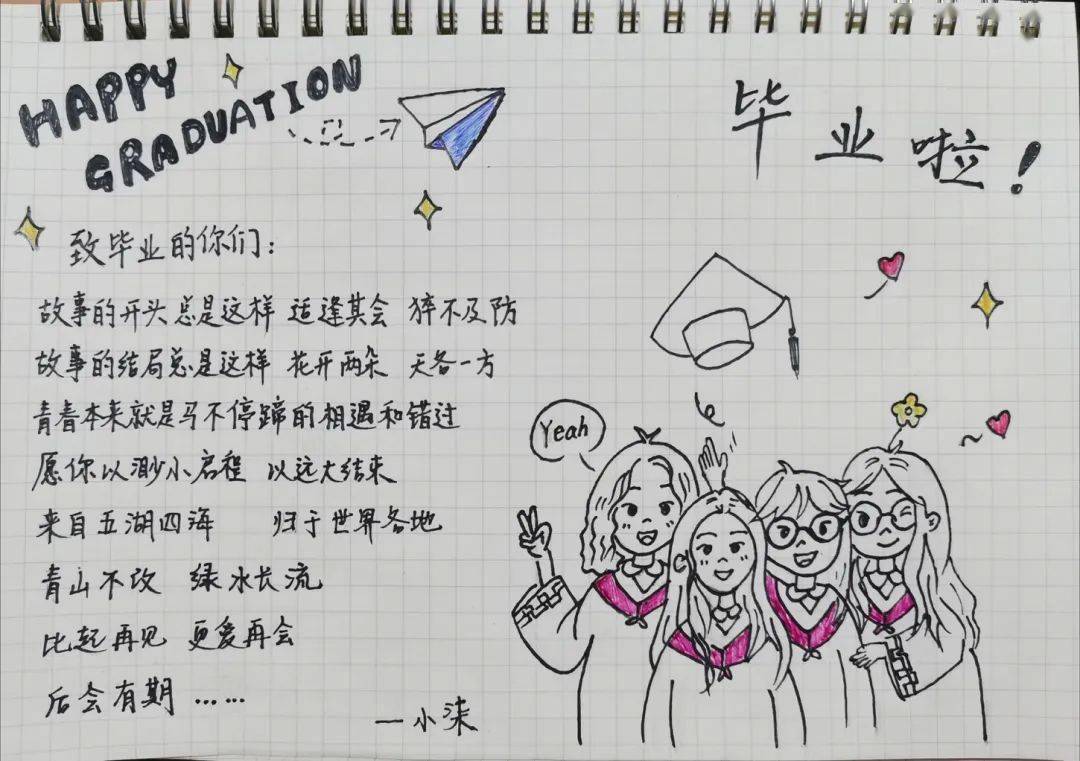 HAPPY
GRADUATION
毕业啦!
致毕业的你们:
故事的开头总是这样 适逢其会 猝不及防
故事的结局总是这样 花开两朵 天各一方
青春本来就是马不停蹄的相遇和错过
愿你以渺小启程 以远大结束
来自五湖四海 归于世界各地
青山不改 绿水长流
比起再见 更爱再会
后会有期 ……
—小柒
Yeah